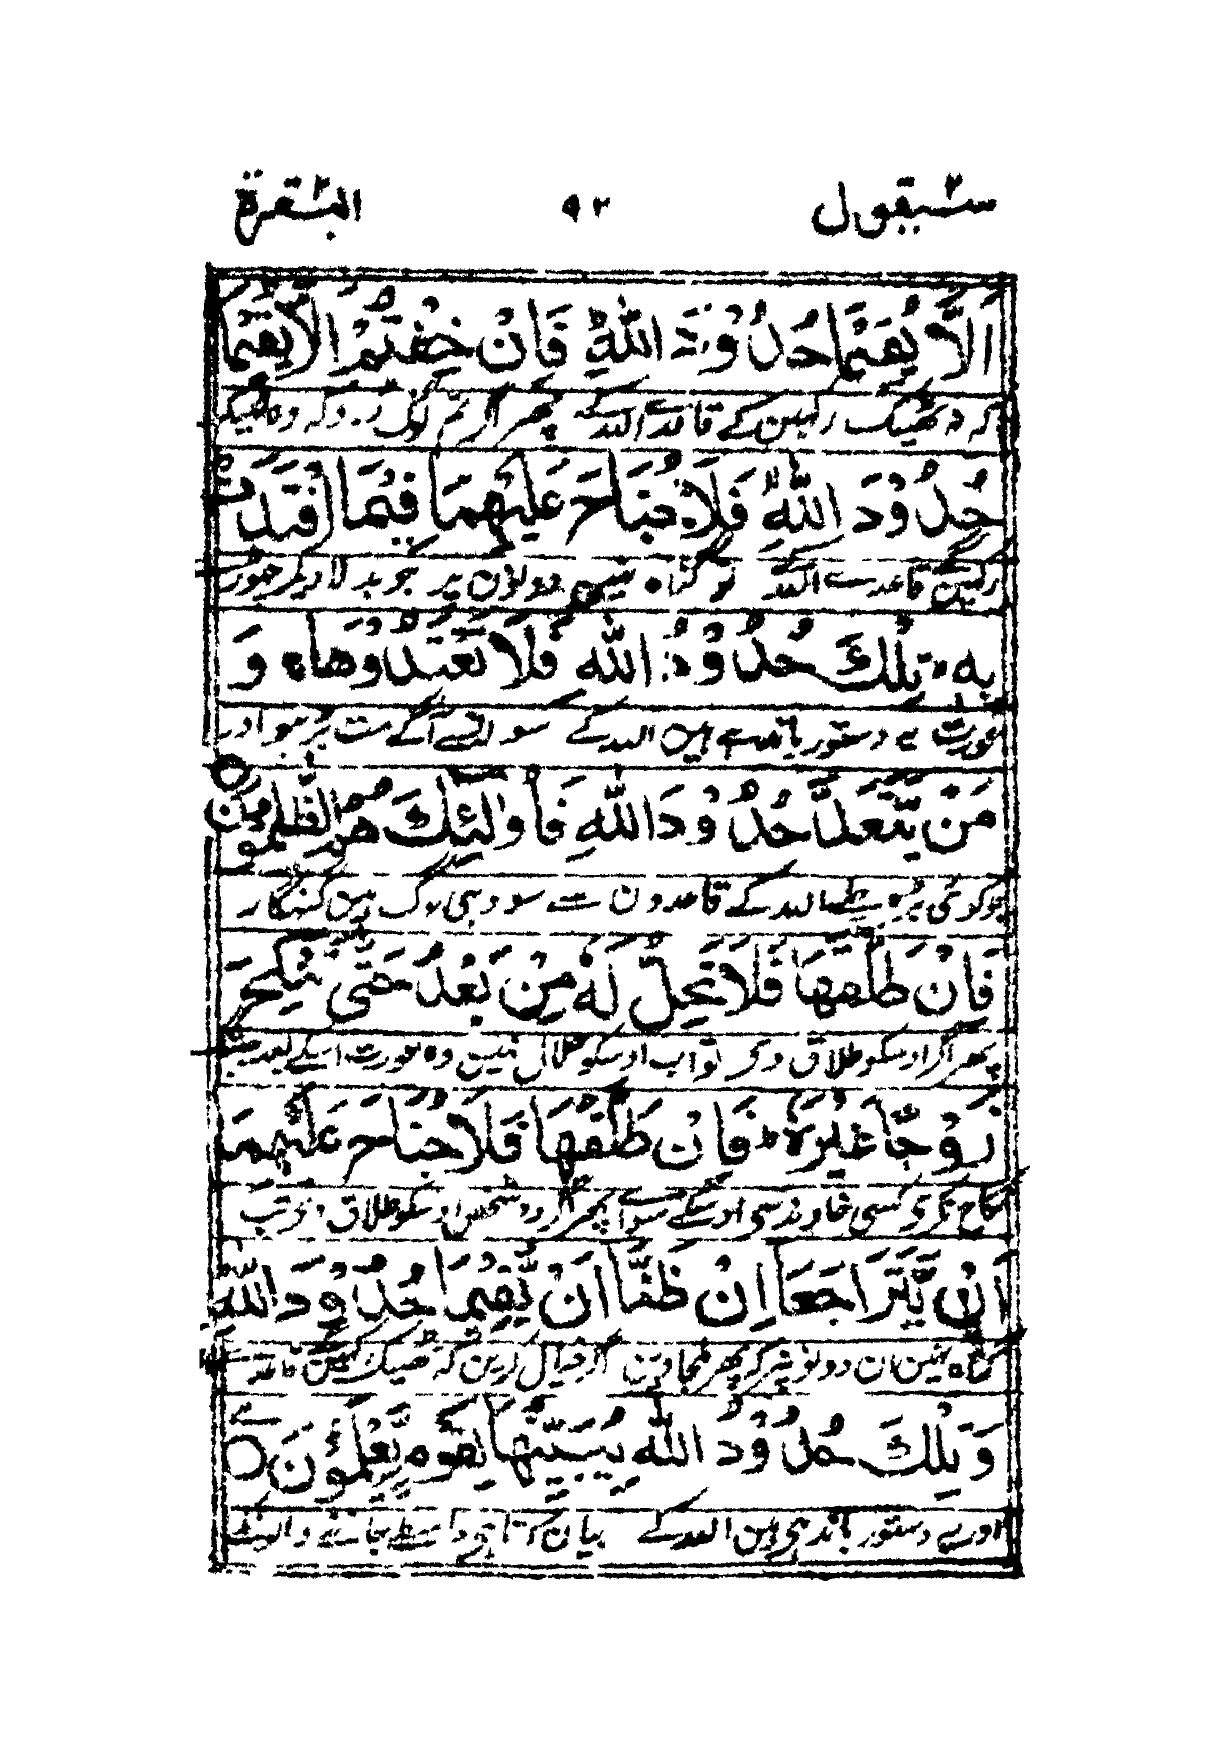 سیقول ٢ ٩٢ البقرة ٢
اَلَّا یُقِیْمَا حُدُوْدَ اللّٰهِ فَاِنْ خِفْتُمْ اَلَّا یُقِیْمَا
کہ نہ ٹھیک رکھین گے قاعدے اللہ کے پھر اگر تم لوگ ڈرو کہ وہ ٹھیک
حُدُوْدَ اللّٰهِ فَلَا جُنَاحَ عَلَیْهِمَا فِیْمَا افْتَدَتْ
رکھین گے قاعدے اللہ تو گناہ نہین دونون پر جو بدلا دیکر چھوٹے
بِهٖ تِلْكَ حُدُوْدُ اللّٰهِ فَلَا تَعْتَدُوْهَا وَ
عورت یے دستور باندھے ہین اللہ کے سو انسے آگے مت بڑھو اور
مَنْ یَّتَعَدَّ حُدُوْدَ اللّٰهِ فَاُولٰٓئِكَ هُمُ الظّٰلِمُوْنَ
جو کوئی بڑھ چلے اللہ کے قاعدون سے سو وہی لوگ ہین گنہگار
فَاِنْ طَلَّقَهَا فَلَا تَحِلُّ لَهٗ مِنْ بَعْدُ حَتّٰی تَنْكِحَ
پھر اگر اوسکو طلاق دی تو اب اوسکو حلال نہین وہ عورت اسکے بعد جب تک
زَوْجًا غَیْرَهٗ فَاِنْ طَلَّقَهَا فَلَا جُنَاحَ عَلَیْهِمَا
نکاح نکری کسی خاوند سی اوسکے سوا پھر اگر وہ شخص اوسکو طلاق دی تب
اَنْ یَّتَرَاجَعَا اِنْ ظَنَّا اَنْ یُّقِیْمَا حُدُوْدَ اللّٰهِ
گناہ نہین ان دونو پر کہ پھر ملجاوین اگر خیال کرین کہ ٹھیک رکھین قاعدے
وَ تِلْكَ حُدُوْدُ اللّٰهِ یُبَیِّنُهَا لِقَوْمٍ یَّعْلَمُوْنَ
اور یے دستور باندھی ہین اللہ کے بیان کرتا ہی واسطے جاننے والونکے